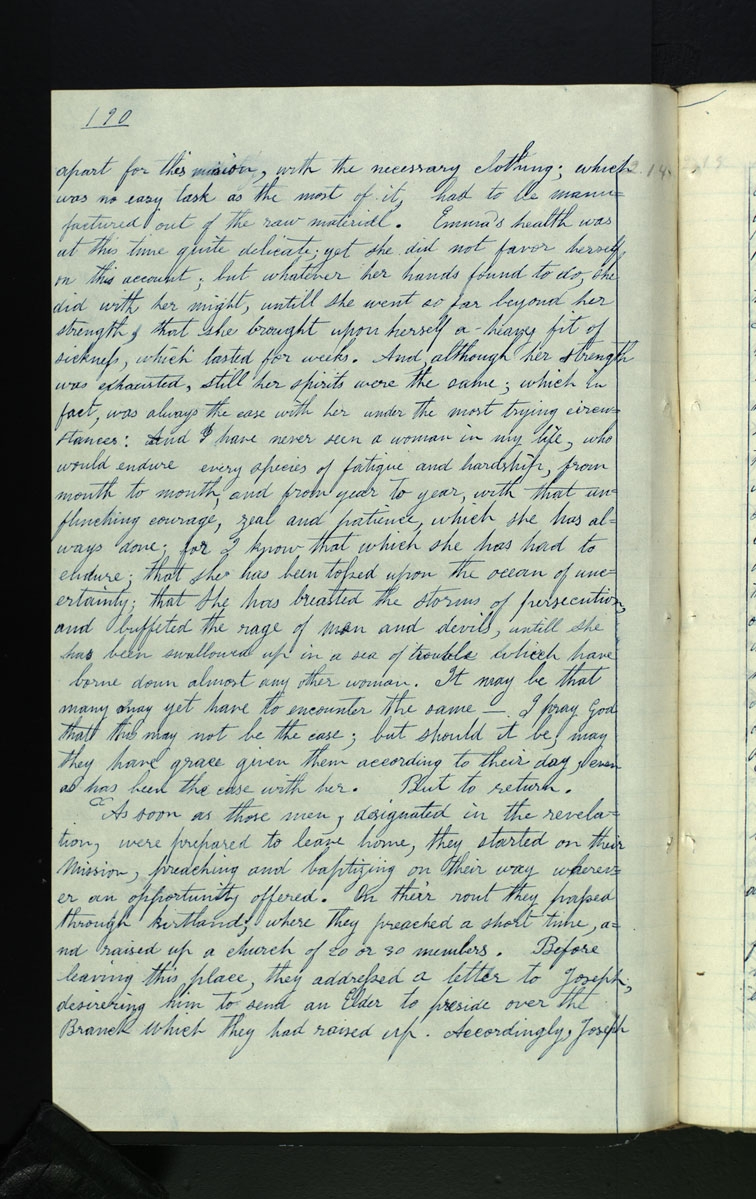 190
apart for this mission, with the necessary clothing; which
was no eazy task as the most of it, had to be manu=
factured out of the raw materiel. Emma's health was
at this time quite delicate; yet she did not favor herself
on this account; but whatever her hands found to do, she
did with her might, untill she went so far beyond her
strength, that she brought upon herself a heavy fit of
sickness, which lasted for weeks. And, although her strength
was exhausted, still her spirits were the same; which in
fact, was always the case with her under the most trying circum=
stances: And I have never seen a woman in my life, who
would endure every species of fatigue and hardship, from
month to month, and from year to year, with that un=
flinching courage, zeal and patience, which she has al=
ways done; for I know that which she has had to
endure; that she has been tossed upon the ocean of unc=
ertainty; that she has breasted the storms of persecution,
and buffeted the rage of men and devils, untill she
has been swallowed up in a sea of trouble which have
borne down almost any other woman. It may be that
many may yet have to encounter the same — I pray God
that this may not be the case; but should it be, may
they have grace given them according to their day, even
as has been the case with her. But to return.
As soon as those men, designated in the revela=
tion, were prepared to leave home, they started on their
Mission, preaching and baptizing on their way wherev=
er an opportunity offered. On their rout they passed
through Kirtland, where they preached a short time, a=
nd raised up a church of 20 or 30 members. Before
leaving this place, they addressed a letter to Joseph,
desirering him to send an Elder to preside over the
Branch which they had raised up. Accordingly, Joseph